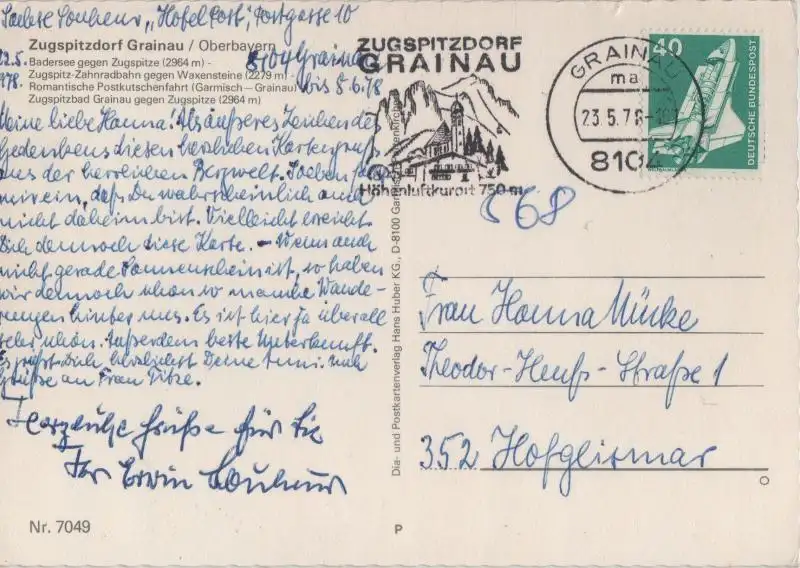 "Hotel Post", Postgasse 10
Zugspitzdorf Grainau / Oberbayern
8104 Grainau
22.5. Badersee gegen Zugspitze (2964 m) -
Zugspitz-Zahnradbahn gegen Waxensteine (2279 m) -
1978. Romantische Postkutschenfahrt (Garmisch–Grainau)
bis 8.6.78
Zugspitzbad Grainau gegen Zugspitze (2964 m)
Meine liebe Hanna! Als äußeres Zeichen des
Gedenkens diesen herzlichen Kartengruß
aus der herrlichen Bergwelt. Soeben fällt
mir ein, daß Du wahrscheinlich auch
nicht daheim bist. Vielleicht erreicht
Dich dennoch diese Karte. – Wenn auch
nicht gerade Sonnenschein ist, so haben
wir dennoch schon so manche Wande-
rungen hinter uns. Es ist hier ja überall
sehr schön. Außerdem beste Unterkunft.
Es grüßt Dich herzlichst Deine
Grüße an Frau Titze.
Herzliche Grüße für Sie
Ihr Erwin
Nr. 7049
P
Dia- und Postkartenverlag Hans Huber KG., D-8100 Garmisch-Partenkirchen
ZUGSPITZDORF
GRAINAU
Höhenluftkurort 750 m
GRAINAU
ma
23.5.78
8104
40
DEUTSCHE BUNDESPOST
568
Frau Hanna Mücke
Theodor-Heuß-Straße 1
352 Hofgeismar